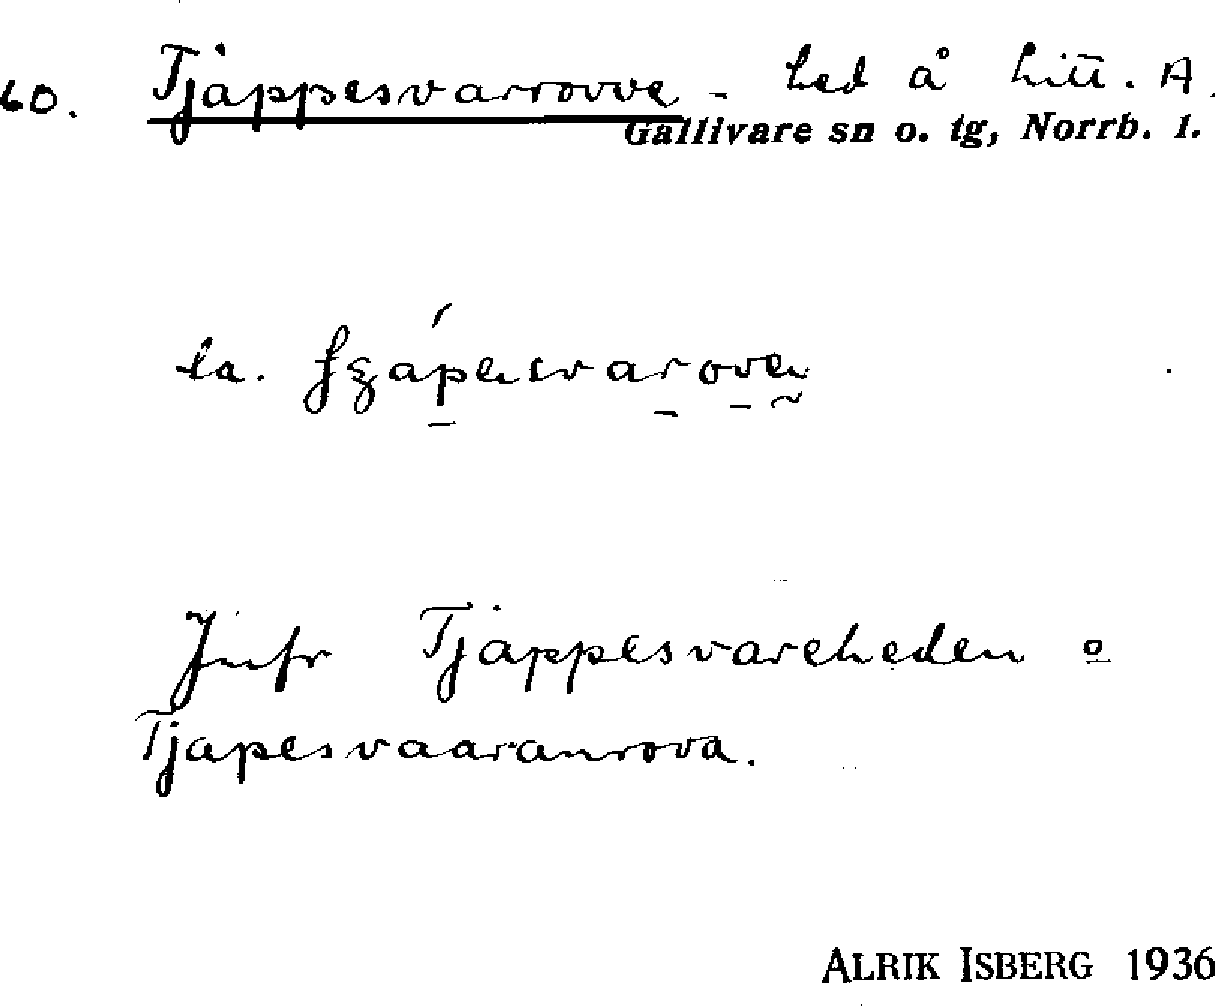 60. Tjappesvarrovve - hed å litt. A.
Gällivare sn o. tg, Norrb. l.
la.
Jmfr Tjappesvareheden o
Tjapesvaaranrova.
ALRIK ISBERG 1936